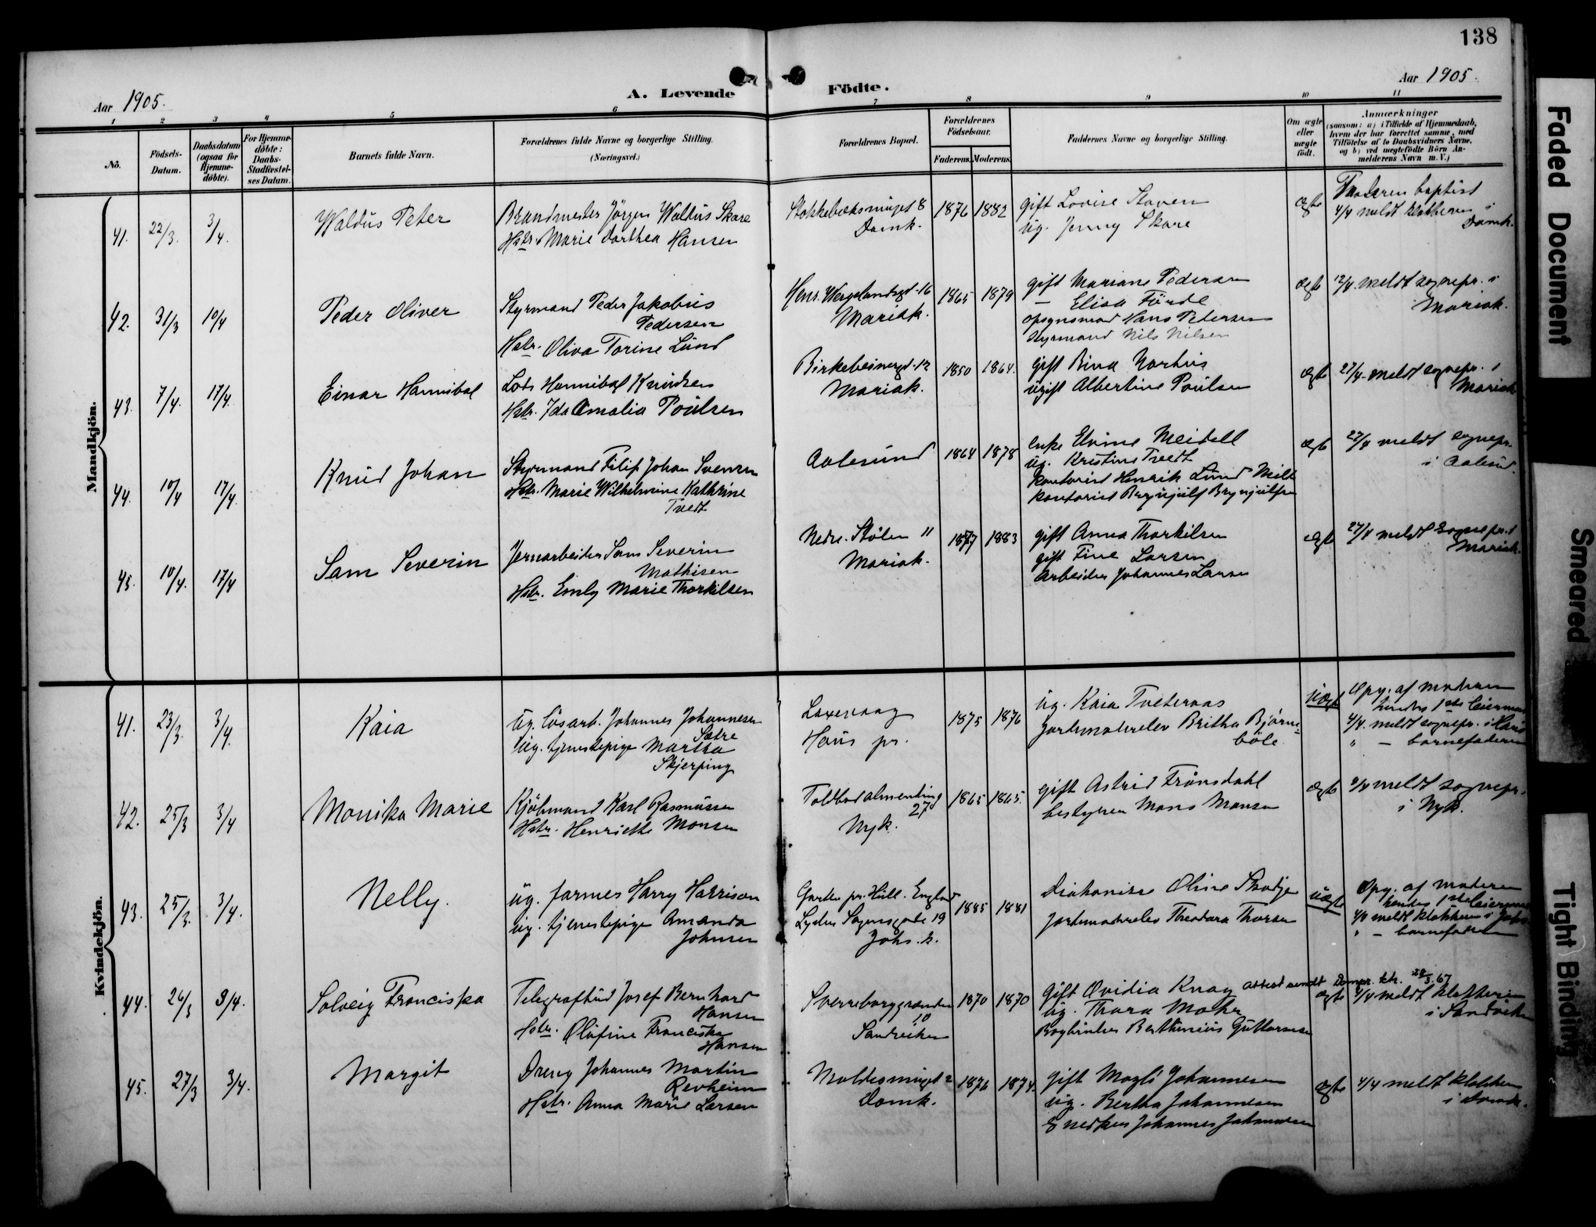 138
Aar 1905.
A. Levende Födte.
Aar 1905.
1 2 3 4 5 6 7 8 9 10 11
No.
Födsels-Datum.
Daabsdatum (ogsaa for Hjemmedöbte).
For Hjemmedöbte: Daabs-Stadfæstelses Datum.
Barnets fulde Navn.
Forældrenes fulde Navne og borgerlige Stilling.
(Næringsvei.)
Forældrenes Bopæl.
Forældrenes Födselsaar.
Faderens. Moderens.
Faddernes Navne og borgerlige Stilling.
Om ægte eller uægte födt.
Anmærkninger
(saasom: a) i Tilfælde af Hjemmedaab, hvem der har forrettet samme, med Tilföielse af to Daabsvidners Navne, og b) ved uægtefödte Börn Anmelderens Navn m. V.)
Mandkjön.
41. 22/3. 3/4. Waldus Peter
Brandmester Jörgen Waldus Skare
Hstr. Marie Dorthea Hansen
Stokkebæksmuget 8
Domk.
1876 1882
gift Lovise Staven
ug. Jenny Skare
ægte
Faderen baptist
4/4 meldt klokkeren i
Domk.
42. 31/3 10/4 Peder Oliver
Styrmand Peder Jakobus
Pedersen
Hstr. Oliva Torine Lund
Henr. Wergelandsgd. 16
Mariak.
1865 1879
gift Mariane Pedersen
— Elisa Förde
opsynsmand Hans Petersen
styrmand Nils Nilsen
ægte
12/4 meldt sognepr. i
Mariak.
43. 7/4. 17/4. Einar Hannibal
Lods Hannibal Knudsen
Hstr. Ida Amalia Poulsen
Birkebeinergd. 12
Mariak.
1850 1864.
gift Bina Narhus
ugift Albertine Poulsen
ægte
27/4 meldt sognepr. i
Mariak
44. 10/4 17/4. Knud Johan
Styrmand Filip Johan Svensen
Hstr. Marie Wilhelmine Kathrine
Tvedt
Aalesund
1864 1878
enke Elvine Meidell
ug. Kristine Tvedt
kontorist Henrik Lund
kontorist Brynjulf Brynjulfsen
ægte
27/4 meldt sognepr.
i Aalesund.
45. 10/4. 17/4 Sam Severin
Jernarbeider Sam Severin
Mathisen
Hstr. Emly Marie Thorkilsen
Nedre Stölen 11
Mariak.
1877 1883
gift Anna Thorkilsen
gift Tine Larsen
Arbeider Johannes Larsen
ægte
27/4 meldt sognepr. i
Mariak.
Kvindekjön.
41. 23/3. 3/4. Kaia
ug. lösarb. Johannes Johannesen
Sætre
ug. tjenestepige Martha
Skjerping
Laxevaag
Haus pr.
1875 1876
ug. Kaia Tveteraas
Jordmoderelev Britha Björne-
böle
uægte
Opg. af moderen
hendes 1ste leiermaal
4/4. meldt sognepr. i Haus
" — barnefaderen
42. 25/3 3/4 Monika Marie
Kjöbmand Karl Rasmussen
Hstr. Henriette Monsen
Toldbodalmending
27
Nyk.
1865 1865.
gift Astrid Frönsdahl
bestyrer Mons Monsen
ægte
4/4 meldt sognepr.
i Nyk.
43. 25/3. 3/4. Nelly.
ug. farmer Harry Harrison
ug. tjenestepige Amanda
Johnsen
pr. Hull. England
Lyder Sagensgade 19
Johs. k.
1885 1881
Diakonisse Oline Skotje
Jordmoderelev Theodora Thorsen
uægte
Opg. af moderen
hendes 1ste leiermaal
4/4 meldt klokkeren i Johs.
" — barnefaderen
44. 26/3 3/4. Solveig Franciska
Telegrafbud Josef Bernhard
Hansen
Hstr. Olufine Franciska
Hansen
Sverreborggrænden
10
Sandviken
1870 1870
Gift Ovidia Knag
ug. Thora Mohr
Bogbinder Berthinius Guttormsen
attest sendt Dompr. ktr. 28/3 67
ægte
4/4 meldt klokkeren
i Sandviken
45. 27/3 3/4. Margit
Dreng Johannes Martin
Revheim
Hstr. Anna Marie Larsen
Moldesmuget 2
Domk.
1876 1874.
gift Magli Johannesen
ug. Bertha Johannesen
Snedker Johannes Johannesen
ægte
4/4 meldt klokker
i Domk.
Faded Document
Smeared
Tight Binding